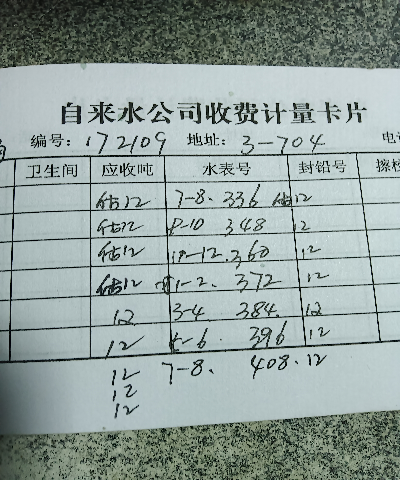 自来水公司收费计量卡片
编号: 172109 地址: 3-704 电
卫生间 应收吨 水表号 封铅号 擦
估12 7-8. 336 估12
估12 9-10 348 12
估12 11-12. 360 12
估12 1-2. 372 12
12 3-4 384. 12
12 5-6. 396 12
12 7-8. 408. 12
12
12